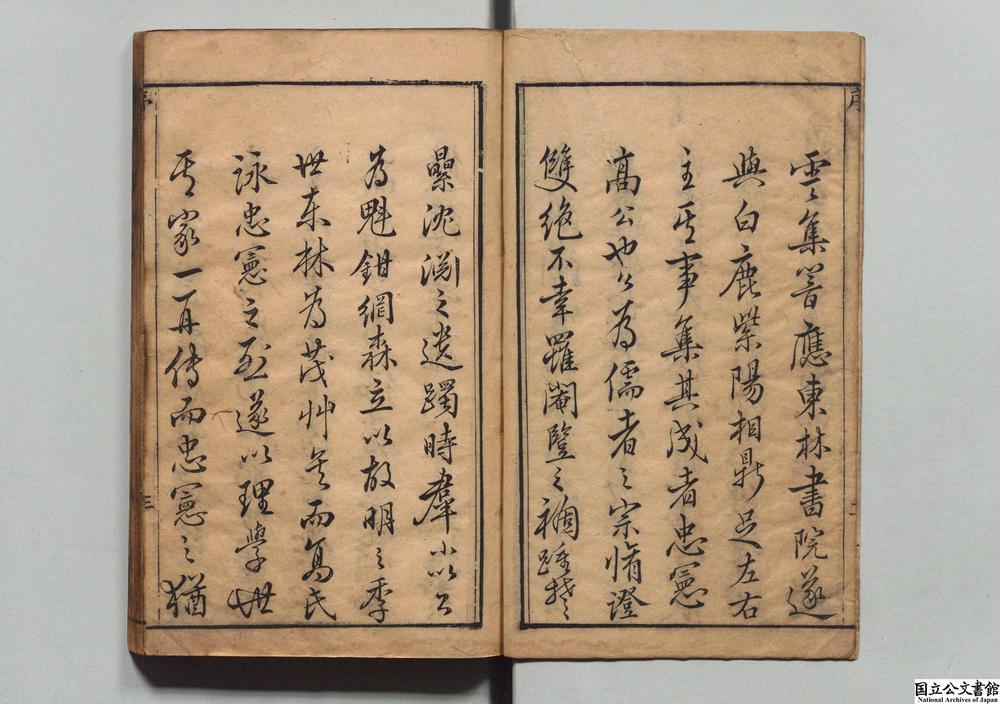 雲集響應東林書院遂
與白鹿紫陽相鼎足左右
主其事集其成者忠憲
高公也公為儒者之宗脩證
雙絶不幸罹閹豎之禍踵楚
纍沈淵之遺躅時羣小以公
為魁鉗網森立以故明之季
世東林為茂艸矣而高氏
詠忠憲之烈遂以理學世
其家一再傳而忠憲之猶
序
序
三
国立公文書館
National Archives of Japan